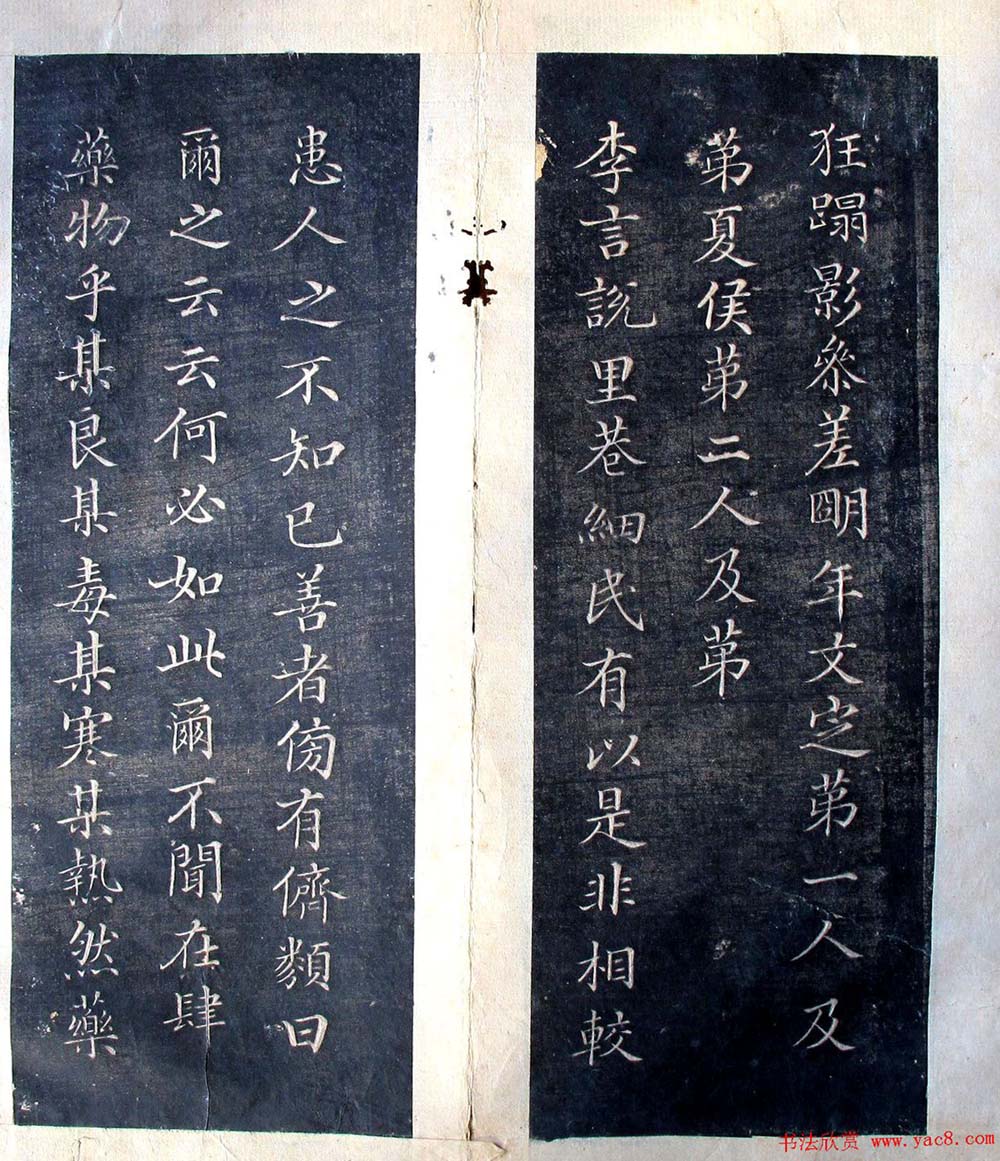 狂蹋影叅差朙年文㝎苐一人及
苐夏侯苐二人及苐
李言説里巷細民有以是非相較
患人之不知已善者傍有儕類曰
爾之云云何必如此爾不聞在肆
藥物乎某良某毒某寒某熱然藥
书法欣赏 www.yac8.com